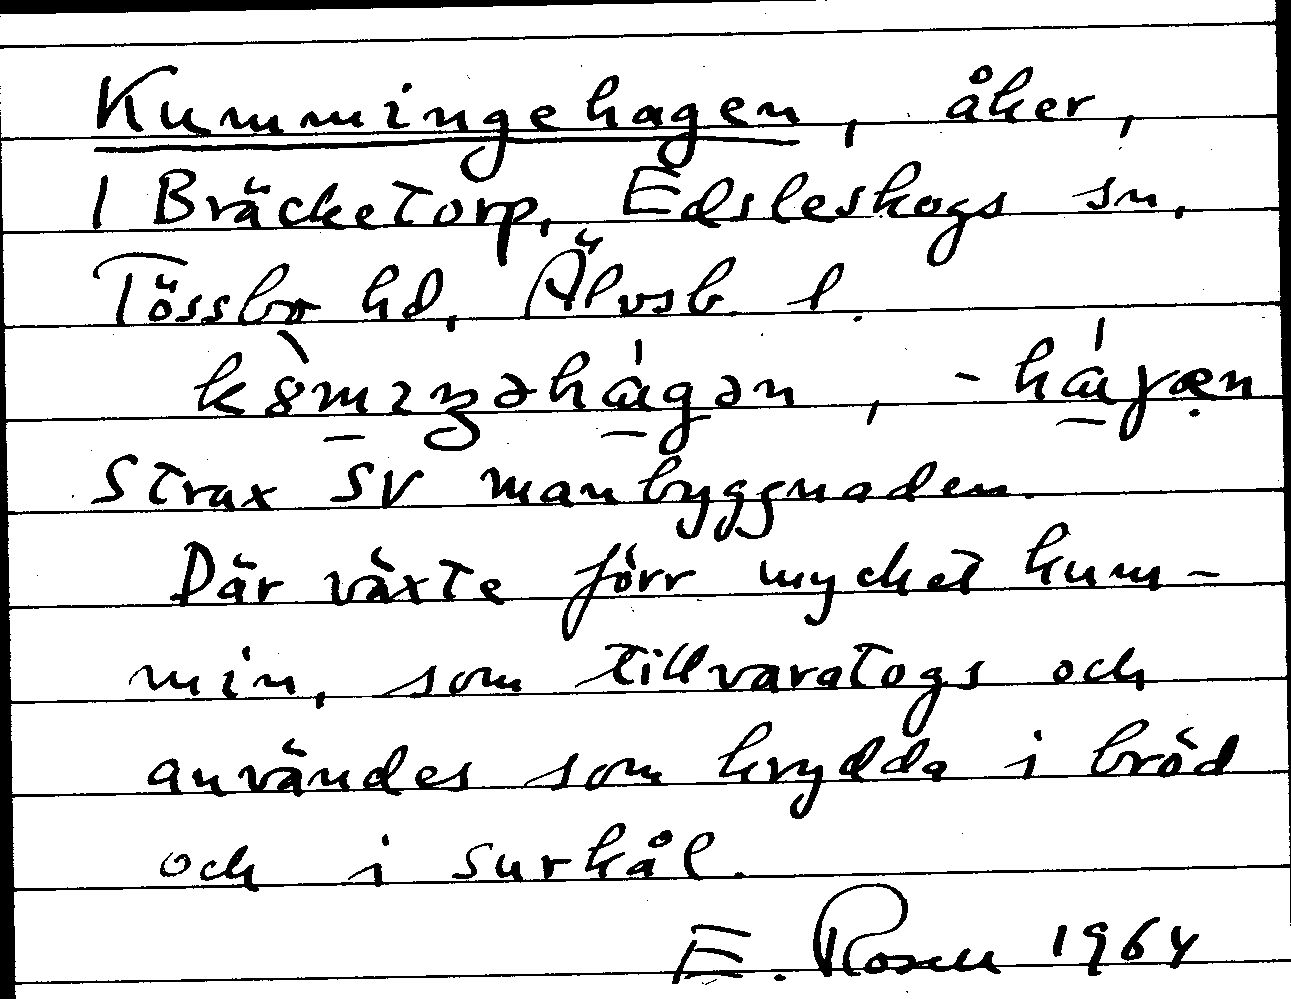 Kummingehagen, åker,
1 Bräcketorp, Edsleskogs sn,
Tössbo hd, Älvsb. l.
strax SV manbyggnaden.
Där växte förr mycket kum-
min, som tillvaratogs och
användes som krydda i bröd
och i surkål.
E. Rosell 1964